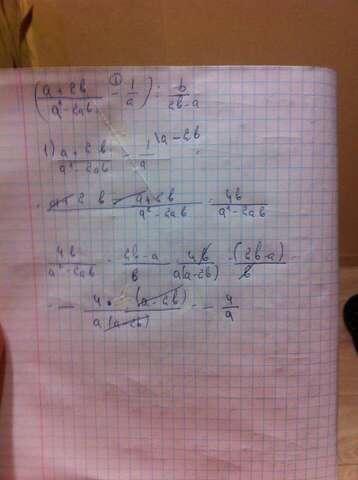 (a+2b/a²-2ab - 1/a) : b/2b-a
1) a+2b/a²-2ab - 1/a \a-2b
= a+2b-a+2b/a²-2ab = 4b/a²-2ab
4b/a²-2ab · 2b-a/b = 4b/a(a-2b) · (2b-a)/b =
= - 4·(a-2b)/a(a-2b) = - 4/a